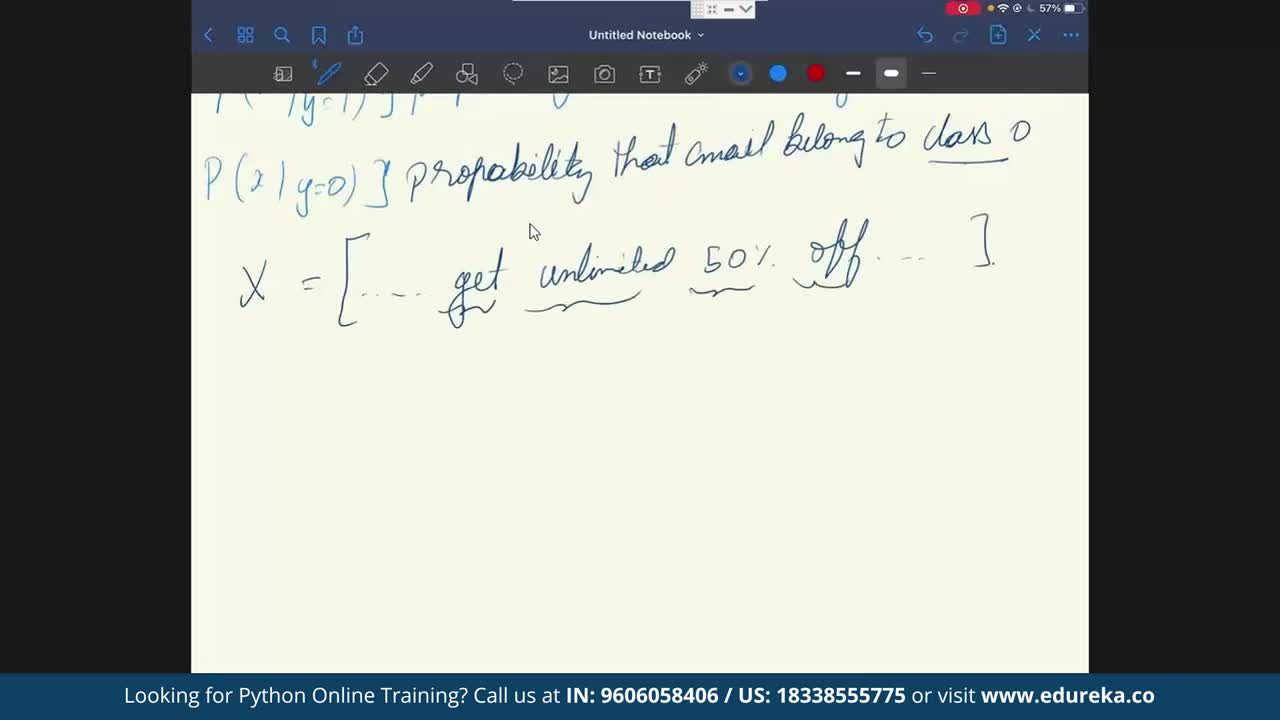 57%
Untitled Notebook
T
/y=1)]
P(x/y=0)] propability that email belong to class 0
X = [..... get unlimited 50% off..... ].
Looking for Python Online Training? Call us at IN: 9606058406 / US: 18338555775 or visit www.edureka.co